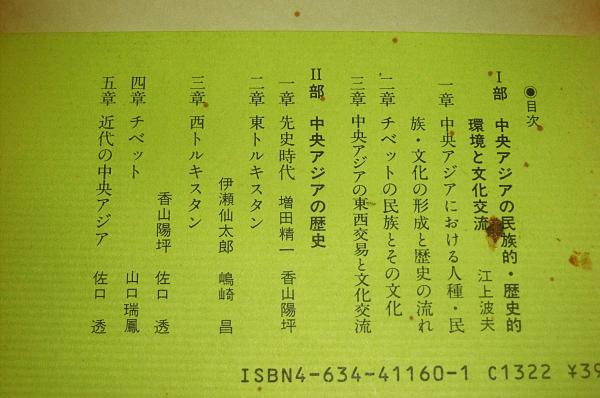 ◉目次
I部 中央アジアの民族的・歴史的
環境と文化交流 江上波夫
一章 中央アジアにおける人種・民
族・文化の形成と歴史の流れ
二章 チベットの民族とその文化
三章 中央アジアの東西交易と文化交流
II部 中央アジアの歴史
一章 先史時代 増田精一 香山陽坪
二章 東トルキスタン
伊瀬仙太郎 嶋崎 昌
三章 西トルキスタン
香山陽坪 佐口 透
四章 チベット 山口瑞鳳
五章 近代の中央アジア 佐口 透
ISBN4-634-41160-1 C1322 ¥39